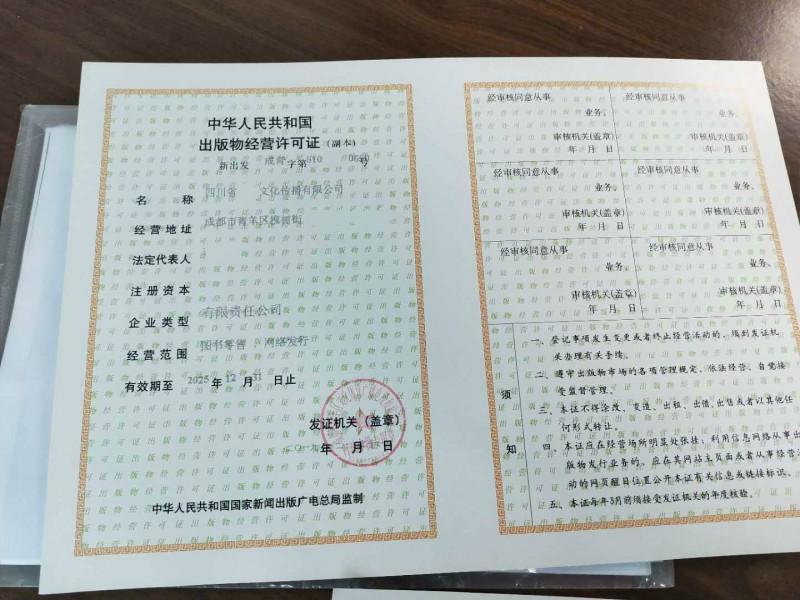 中华人民共和国
出版物经营许可证（副本）
新出发 成青 字第 号
名 称 四川省 文化传播有限公司
经营地址 成都市青羊区
法定代表人
注册资本
企业类型 有限责任公司
经营范围 图书零售 网络发行
有效期至 2025年12月31日止
发证机关（盖章）
年 月 日
中华人民共和国国家新闻出版广电总局监制
经审核同意从事
业务。
审核机关(盖章)
年 月 日
经审核同意从事
业务。
审核机关(盖章)
年 月 日
经审核同意从事
业务。
审核机关(盖章)
年 月 日
经审核同意从事
业务。
审核机关(盖章)
年 月 日
经审核同意从事
业务。
审核机关(盖章)
年 月 日
经审核同意从事
业务。
审核机关(盖章)
年 月 日
须知
一、登记事项发生变更或者终止经营活动的，须到发证机
关办理有关手续。
二、遵守出版物市场的各项管理规定，依法经营、自觉接
受监督管理。
三、本证不得涂改、变造、出租、出借、出售或者以其他任
何形式转让。
四、本证应在经营场所明显处张挂，利用信息网络从事出
版物发行业务的，应在其网站主页面或者从事经营活
动的网页醒目位置公开本证有关信息或链接标识。
五、本证每年3月前须接受发证机关的年度核验。